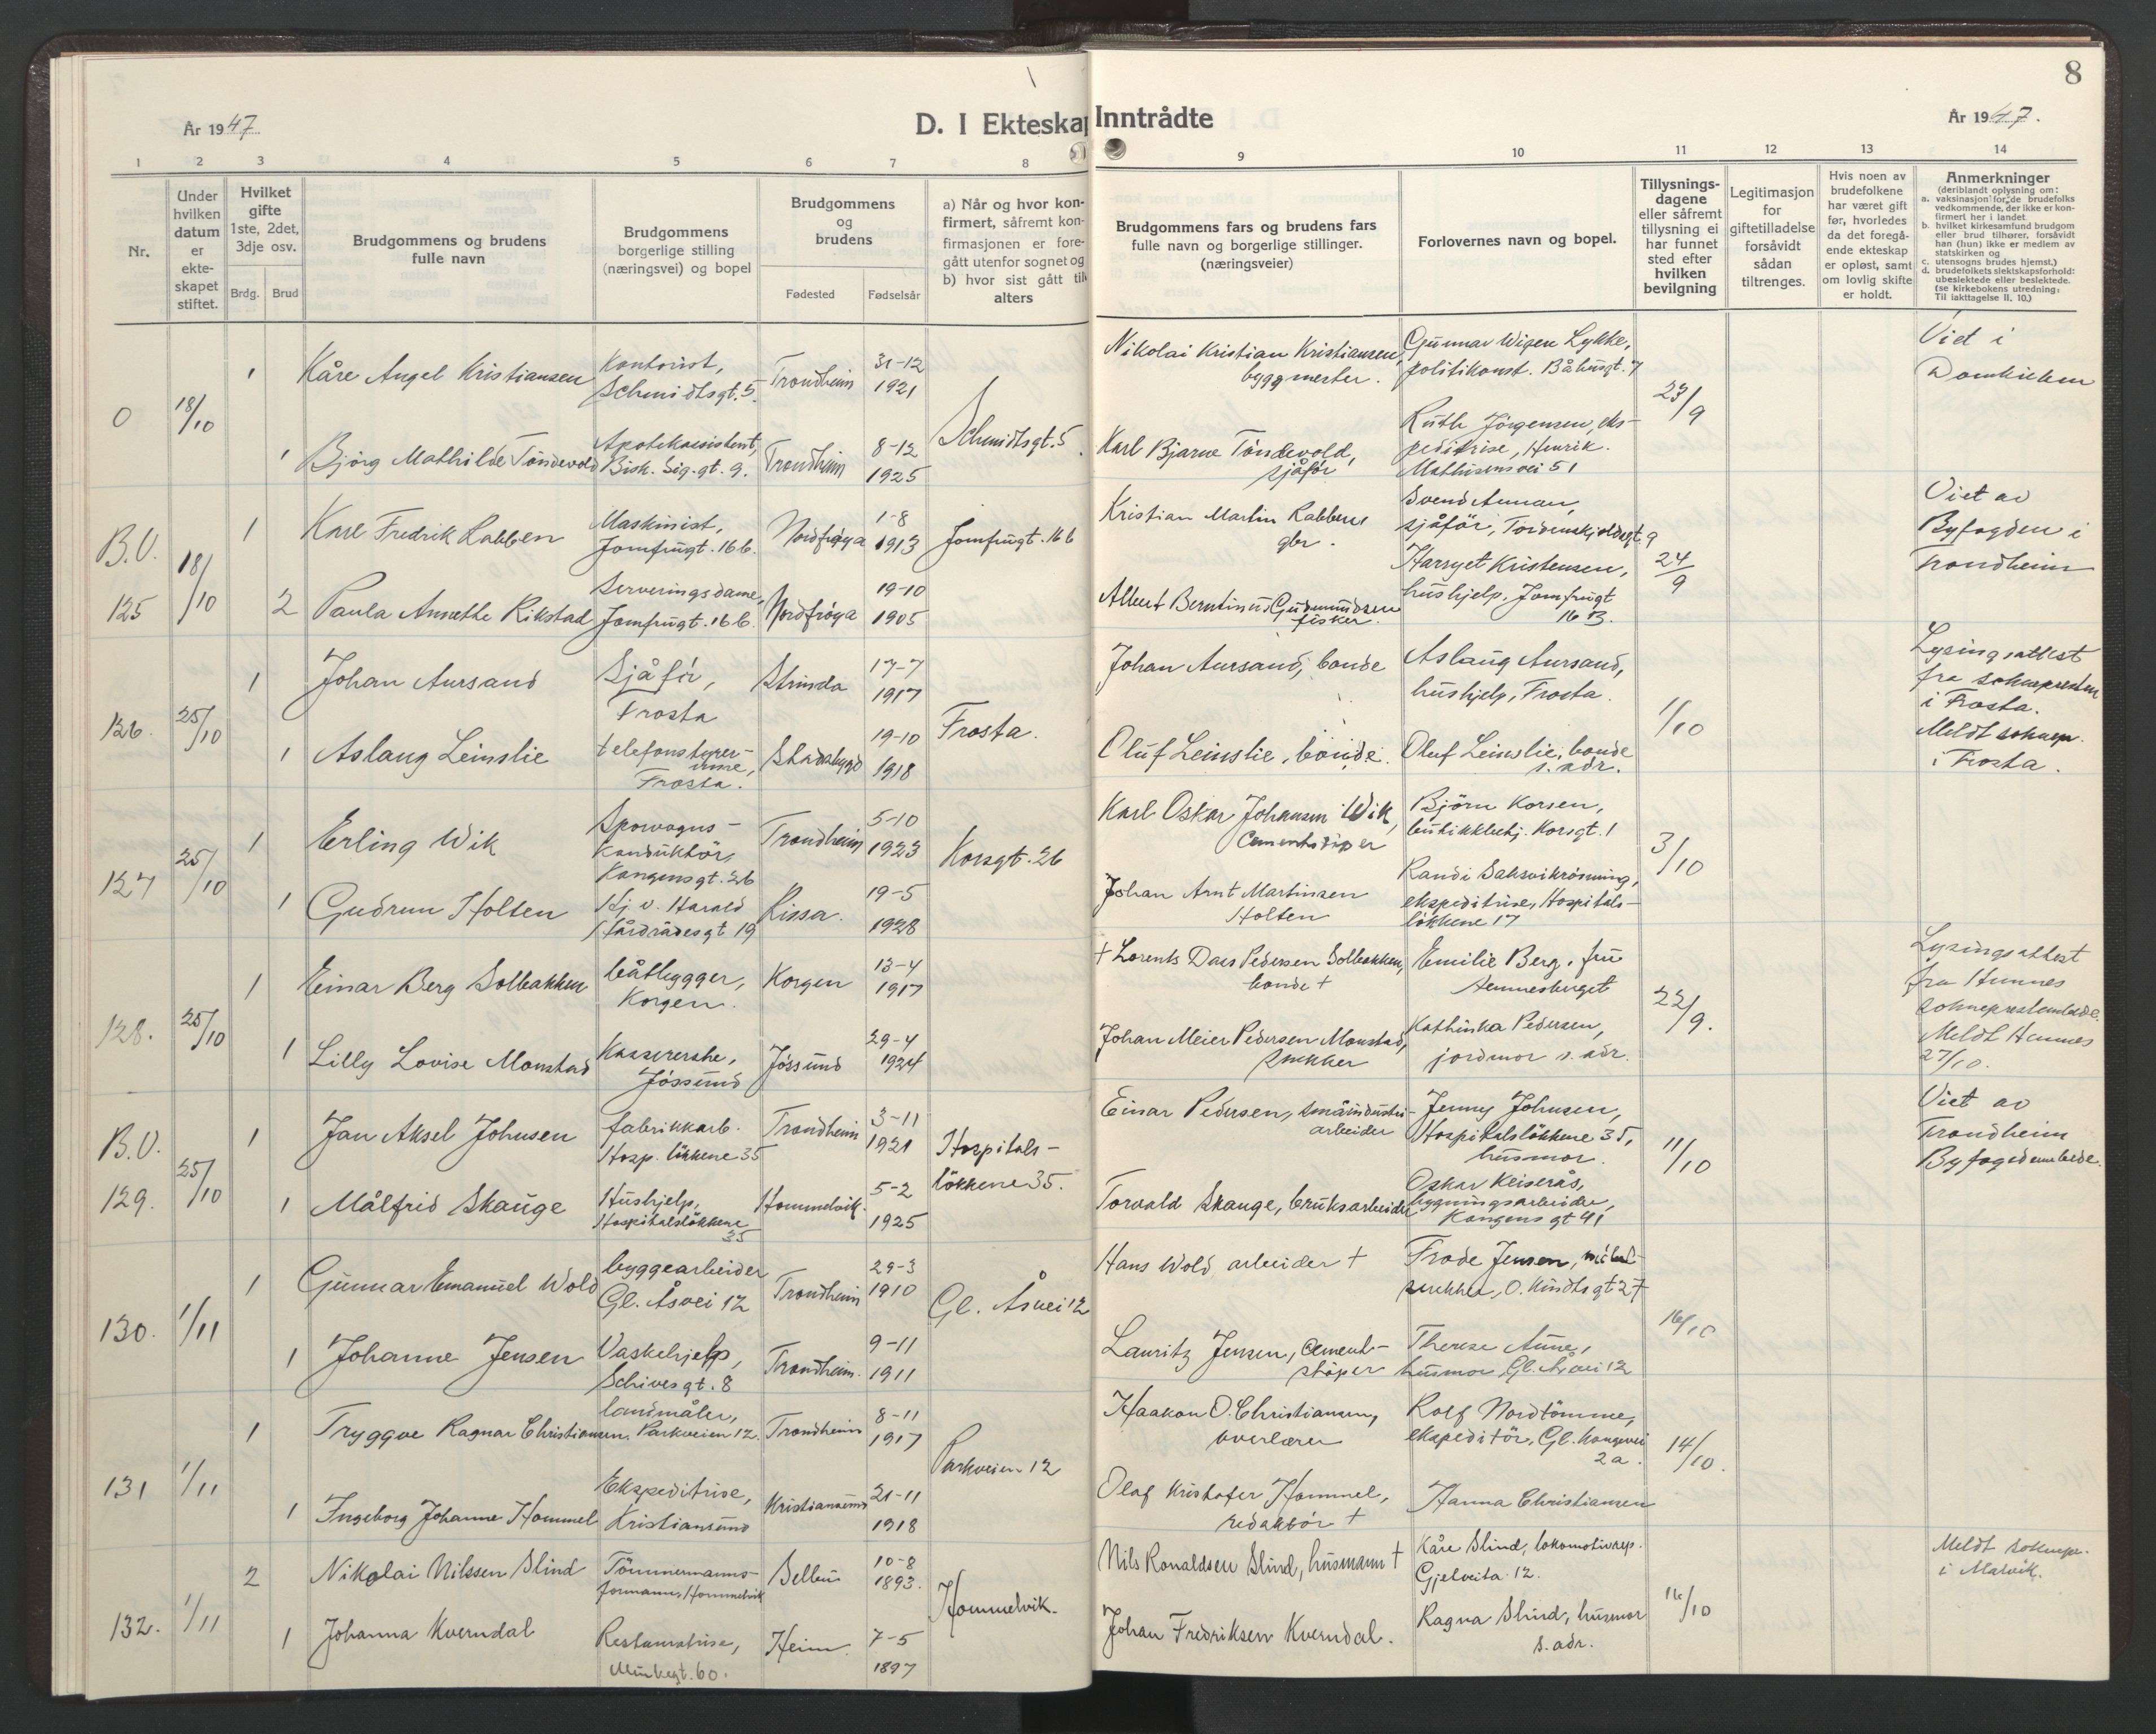 År 1947
D. I Ekteskap
1 2 3 4 5 6 7 8
Nr.
Under
hvilken
datum
er
ekte-
skapet
stiftet.
Hvilket
gifte
1ste, 2det,
3dje osv.
Brdg. Brud
Brudgommens og brudens
fulle navn
Brudgommens
borgerlige stilling
(næringsvei) og bopel
Brudgommens
og
brudens
Fødested Fødselsår
a) Når og hvor kon-
firmert, såfremt kon-
firmasjonen er fore-
gått utenfor sognet og
b) hvor sist gått til
alters
0 18/10
1 Kåre Angel Kristiansen
Kontorist,
Schmidtsgt. 5.
Trondheim
31-12
1921
Schmidtsgt. 5.
1 Bjørg Mathilde Tøndevold
Apotekassistent,
Bisk. Sig. gt. 9.
Trondheim
8-12
1925
B.V.
125
18/10
1 Karl Fredrik Rabben
Maskinist,
Jomfrugt. 16 b.
Nordfrøya
1-8
1913
Jomfrugt. 16 b
2 Paula Annethe Rikstad
Serveringsdame,
Jomfrugt. 16 b.
Nordfrøya
19-10
1905
126. 25/10
1 Johan Aursand
Sjåfør,
Frosta
Strinda
17-7
1917
Frosta.
1 Aslaug Leinslie
telefonstyrer-
inne,
Frosta.
Stadsbygd
19-10
1918
127 25/10
1 Erling Wik
Sporvogns-
konduktør,
Kongensgt. 26
Trondheim
5-10
1923
Korsgt. 26
1 Gudrun Holten
Hj. v. Harald
Hårdrådesgt 19
Rissa.
19-5
1928
128. 25/10
1 Einar Berg Solbakken
båtbygger,
Korgen.
Korgen
13-4
1917
1 Lilly Lovise Monstad
Kassererske,
Jøssund
Jøssund
29-4
1924
B.V.
129.
25/10
1 Jan Aksel Johnsen
fabrikkarb.
Hosp. løkkene 35
Trondheim
3-11
1921
Hospitals-
løkkene 35.
1 Målfrid Skauge
Hushjelp,
Hospitalsløkkene
35
Hommelvik.
5-2
1925
130. 1/11
1 Gunnar Emanuel Wold
byggearbeider
Gl. Åsvei 12
Trondheim
29-3
1910
Gl. Åsvei 12
1 Johanne Jensen
Vaskehjelp,
Schivesgt. 8
Trondheim.
9-11
1911
131 1/11
1 Tryggve Ragnar Christiansen.
landmåler,
Parkveien 12.
Trondheim
8-11
1917
Parkveien 12
1 Ingeborg Johanne Hommel
Ekspeditrise,
Kristiansund
Kristiansund
21-11
1918
132. 1/11
2 Nikolai Nilssen Slind
Tømmermanns-
formann, Hommelvik
Selbu
10-8
1893.
Hommelvik.
1 Johanna Kverndal
Restauratrise,
Munkegt. 60.
Heim.
7-5
1897
8
Inntrådte
År 1947.
9 10 11 12 13 14
Brudgommens fars og brudens fars
fulle navn og borgerlige stillinger.
(næringsveier)
Forlovernes navn og bopel.
Tillysnings-
dagene
eller såfremt
tillysning ei
har funnet
sted efter
hvilken
bevilgning
Legitimasjon
for
giftetilladelse
forsåvidt
sådan
tiltrenges.
Hvis noen av
brudefolkene
har været gift
før, hvorledes
da det foregå-
ende ekteskap
er opløst, samt
om lovlig skifte
er holdt.
Anmerkninger
(deriblandt oplysning om:
a. vaksinasjon for de brudefolks
vedkommende, der ikke er kon-
firmert her i landet
b. hvilket kirkesamfund brudgom
eller brud tilhører, forsåvidt
han (hun) ikke er medlem av
statskirken og
c. utensogns brudes hjemst.)
d. brudefolkets slektskapsforhold:
ubeslektede eller beslektede.
(se kirkebokens utredning:
Til iakttagelse II, 10.)
Nikolai Kristian Kristiansen,
byggmester.
Gunnar Wigen Lykke,
politikonst. Båhusgt. 7
23/9
Viet i
Domkirken
Karl Bjarne Tøndevold,
sjåfør
Ruth Jørgensen, eks-
peditrise, Henrik
Mathisensvei 51
Kristian Martin Rabben,
gbr.
Svend Aunan,
sjåfør, Tordenskjoldsgt. 9
24/9
Viet av
Byfogden i
Trondheim
Albert Berntinus Gudmundsen
fisker.
Harryet Kristensen,
hushjelp, Jomfrugt
16 B.
Johan Aursand, bonde
Aslaug Aursand,
hushjelp, Frosta.
1/10
Lysingsattest
fra soknepresten
i Frosta.
Meldt soknepr.
i Frosta.
Oluf Leinslie, bonde.
Oluf Leinslie, bonde
s. adr.
Karl Oskar Johansen Wik,
Cementstøper
Bjørn Korsen,
butikkbetj. Korsgt. 1
3/10
Johan Arnt Martinsen
Holten
Randi Saksvikrønning,
ekspeditrise, Hospitals-
løkkene 17
† Lorents Daes Pedersen Solbakken,
bonde †
Emilie Berg, fru
Hemnesberget
22/9.
Lysingsattest
fra Hemnes
sokneprestembede.
Meldt Hemnes
27/10.
Johan Meier Pedersen Monstad,
snekker
Kathinka Pedersen,
jordmor s. adr.
Einar Pedersen, småindustri-
arbeider
Jenny Johnsen,
Hospitalsløkkene 35,
husmor.
11/10
Viet av
Trondheim
Byfogdembede.
Torvald Skauge, bruksarbeider
Oskar Keiserås,
bygningsarbeider,
Kongensgt 41
Hans Wold arbeider †
Frode Jensen, møbel-
snekker, O. Kindtsgt 27
16/10
Lauritz Jensen, cement-
støper
Therese Aune,
husmor Gl. Åsvei 12
Haakon O. Christiansen,
overlærer
Rolf Nordtømme,
ekspeditør, Gl. kongevei
2a.
14/10.
Olaf Kristofer Hommel,
redaktør †
Hanna Christiansen
Nils Ronaldsen Slind, husmann †
Kåre Slind, lokomotivrep.
Gjelveita 12.
16/10
Meldt soknepr.
i Malvik.
Johan Fredriksen Kverndal.
Ragna Slind, husmor
s. adr.